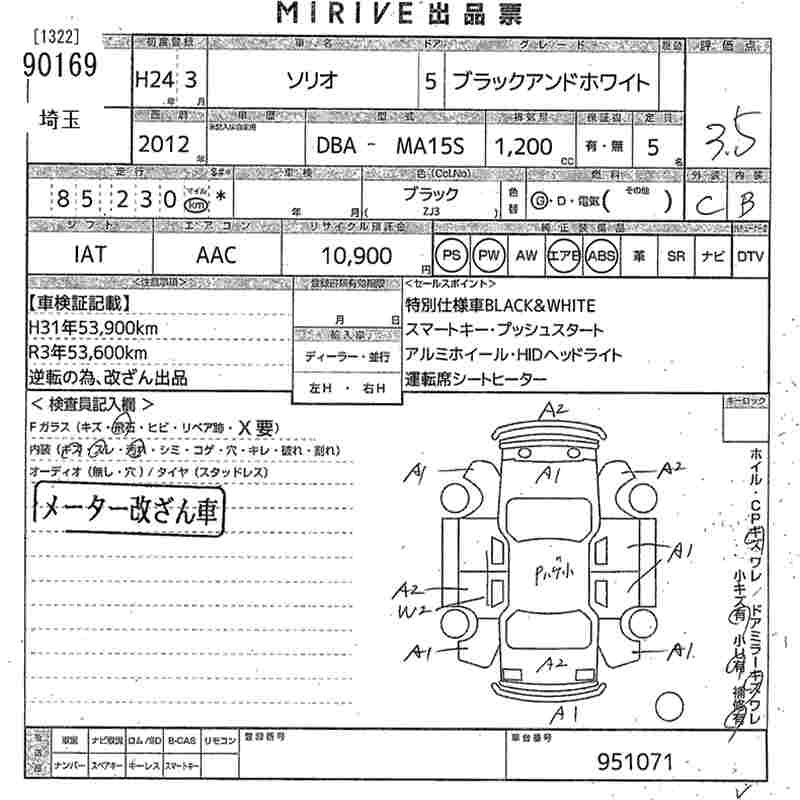 MIRIVE出品票
[1322]
90169
埼玉
初度登録 車名 ドア グレード 評価点
H24 3 ソリオ 5 ブラックアンドホワイト
年 月
3.5
車歴 型式 排気量 定員
2012 年 DBA - MA15S 1,200 cc 有・無 5 名
走行 車検 色(Col.No) 燃料 外装 内装
85,230 マイル km * 年 月 ブラック 色替 G・D・電気( その他 ) C B
( ZJ3 )
シフト エアコン リサイクル預託金 純正装備品
IAT AAC 10,900 円 PS PW AW エアB ABS 革 SR ナビ DTV
<注意事項>
【車検証記載】
H31年53,900km
R3年53,600km
逆転の為、改ざん出品
月 日
輸入車
ディーラー・並行
左H ・ 右H
<セールスポイント>
特別仕様車BLACK&WHITE
スマートキー・プッシュスタート
アルミホイール・HIDヘッドライト
運転席シートヒーター
< 検査員記入欄 >
Fガラス (キズ・飛石・ヒビ・リペア跡・X要)
内装 (キズ・スレ・汚れ・シミ・コゲ・穴・キレ・破れ・割れ)
オーディオ (無し・穴) / タイヤ (スタッドレス)
メーター改ざん車
キーロック
A2
A1 A1 A2
A1
A2
W2
A1 A2 A1
A1
ホイル・CPキズワレ / ドアミラーキズワレ
小キズ有 小凹有 補修有
取説 ナビ取説 B-CAS リモコン 登録番号 車台番号
ナンバー スペアキー キーレス スマートキー 951071